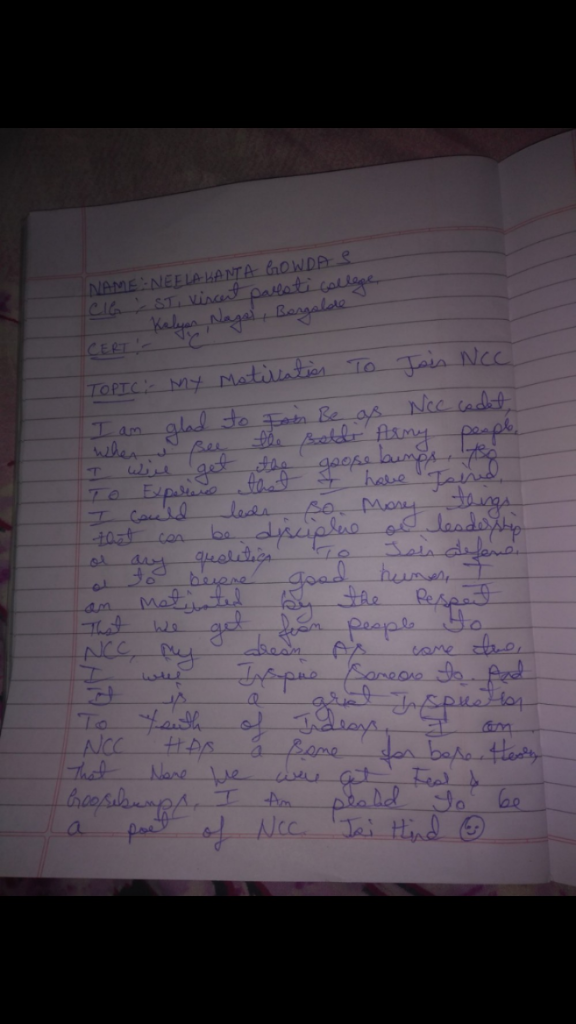 NAME:- NEELAKANTA GOWDA S
C/G :- ST. Vincent pallotti college,
Kalyan Nagar, Bangalore
CERT:- 'C'
TOPIC:- MY Motivation To Join NCC
I am glad to Be as NCC cadet,
when I see the Army people,
I will get the goosebumps, so
To Experince that I have Joined,
I could learn so Many things
that can be discipline or leadership
or any qualities To Join defence,
or to become good human, I
am Motivated by the Respect
That we get from people to
NCC, My dream As come true,
I will Inspire Someone to. And
It is a great Inspiration
To Youth of Indians, I am
NCC HAS a name for
That Name we will get Feel &
Goosebumps, I Am proud to be
a part of NCC Jai Hind ☺